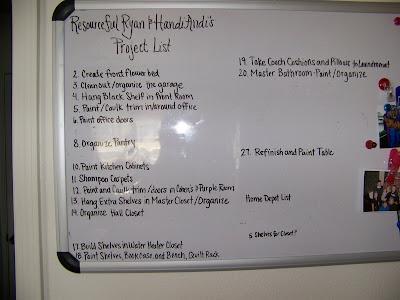 Resourceful Ryan & Handi Andi's
Project List
2. Create front flower bed
3. Cleanout/organize the garage
4. Hang Black Shelf in Front Room
5. Paint/Caulk trim in/around office
6. Paint office doors
8. Organize Pantry
10. Paint Kitchen Cabinets
11. Shampoo Carpets
12. Paint and Caulk trim/doors in Caden's & Purple Room
13. Hang Extra Shelves in Master Closet/Organize
14. Organize Hall Closet
17. Build Shelves in Water Heater Closet
18. Paint Shelves, Bookcase, and Bench, Quilt Rack
19. Take Couch Cushions and Pillows to Laundromat
20. Master Bathroom-Paint/Organize
27. Refinish and Paint Table
Home Depot List
5 Shelves for Closet?